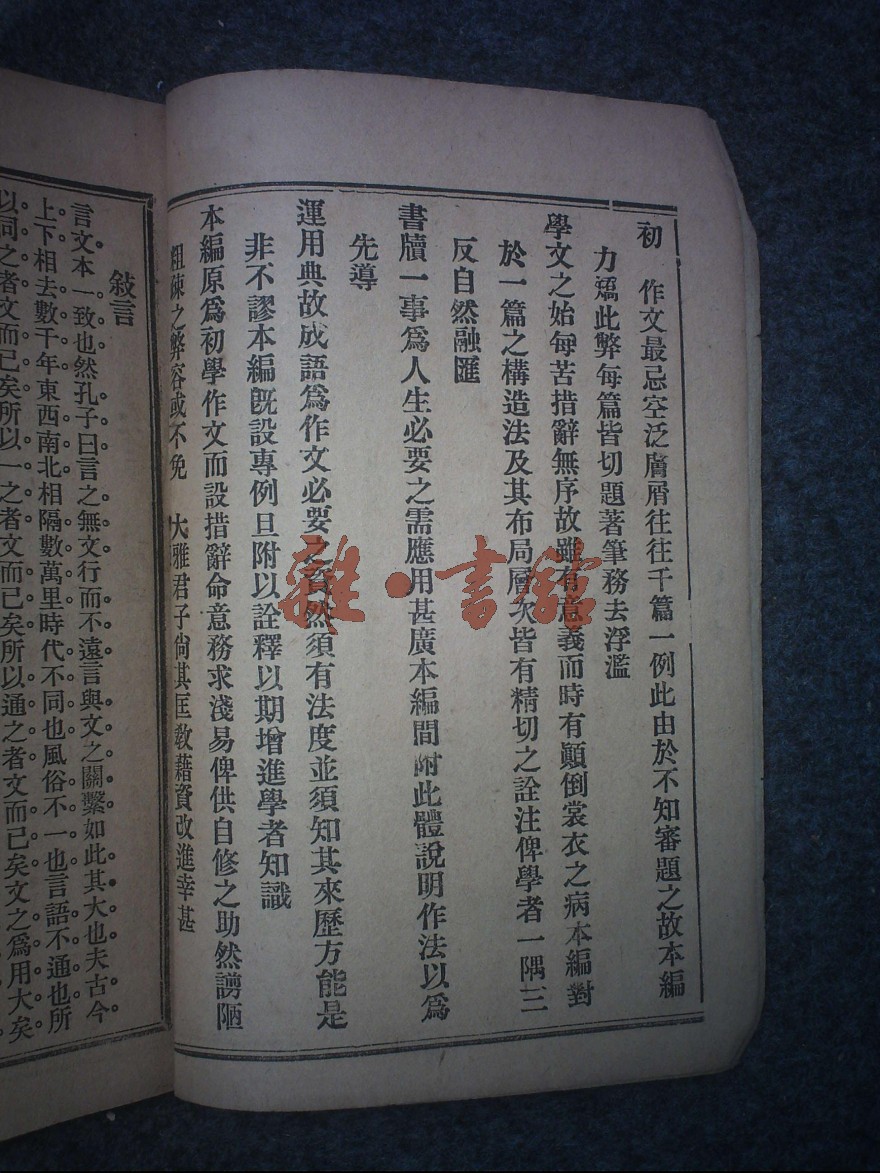 初 作文最忌空泛膚屑往往千篇一例此由於不知審題之故本編
力矯此弊每篇皆切題著筆務去浮濫
學文之始每苦措辭無序故雖有意義而時有顛倒裳衣之病本編對
於一篇之構造法及其布局層次皆有精切之詮注俾學者一隅三
反自然融匯
書牘一事爲人生必要之需應用甚廣本編間附此體說明作法以爲
先導
運用典故成語爲作文必要之資然須有法度並須知其來歷方能是
非不謬本編旣設專例旦附以詮釋以期增進學者知識
本編原爲初學作文而設措辭命意務求淺易俾供自修之助然謭陋
粗疎之弊容或不免 大雅君子倘其匡敎藉資改進幸甚
敍言
言文本一致也然孔子曰言之無文行而不遠言與文之關繫如此其大也夫古今
上下相去數千年東西南北相隔數萬里時代不同也風俗不一也言語不通也所
以詞之者文而已矣所以一之者文而已矣所以通之者文而已矣文之爲用大矣
雜·書館